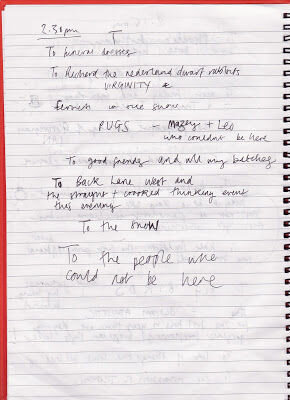 2.30pm
To funeral dresses
To Richard the nederland dwarf rabbits
VIRGINITY &
in our snow
PUGS - Mazey + Leo
who couldn't be here
To good friends and all my bitches
To Back Lane West and
the straight + crooked thinking event
this evening
To the snow
To the people who
could not be here